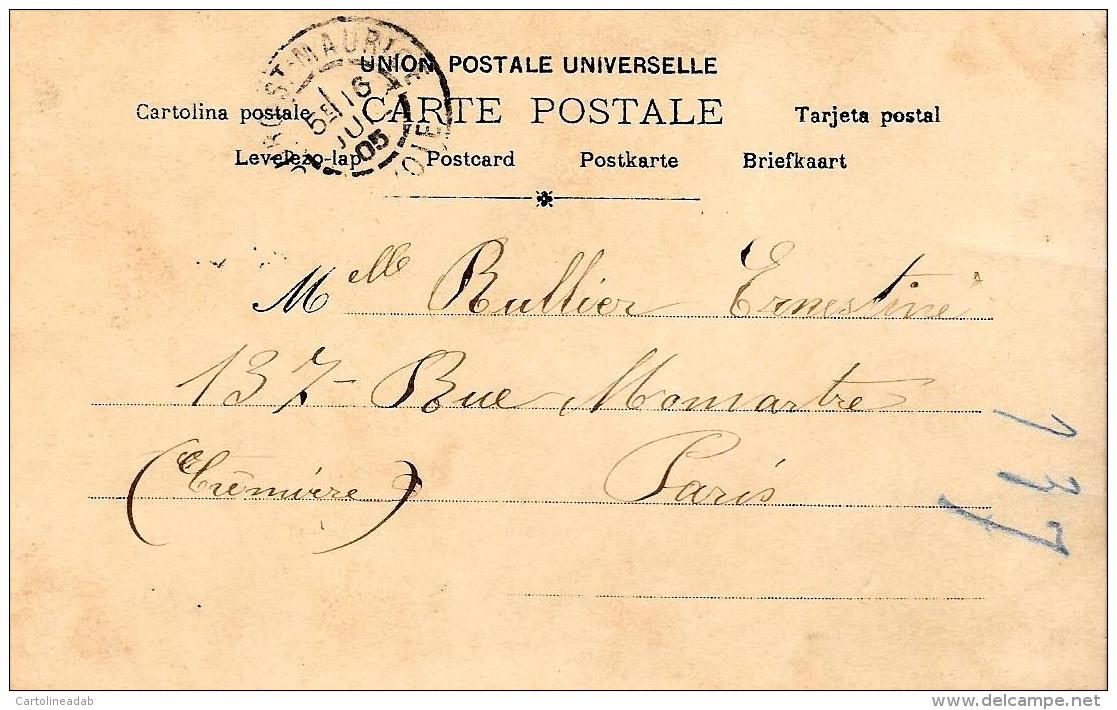 UNION POSTALE UNIVERSELLE
Cartolina postale CARTE POSTALE Tarjeta postal
Levelezo-lap Postcard Postkarte Briefkaart
ST-MAURICE
16
JUIL
05
Mlle Rullier Ernestine
137 - Rue Momartre
(Crêmière) Paris
137
Cartolineadab
delcampe.net